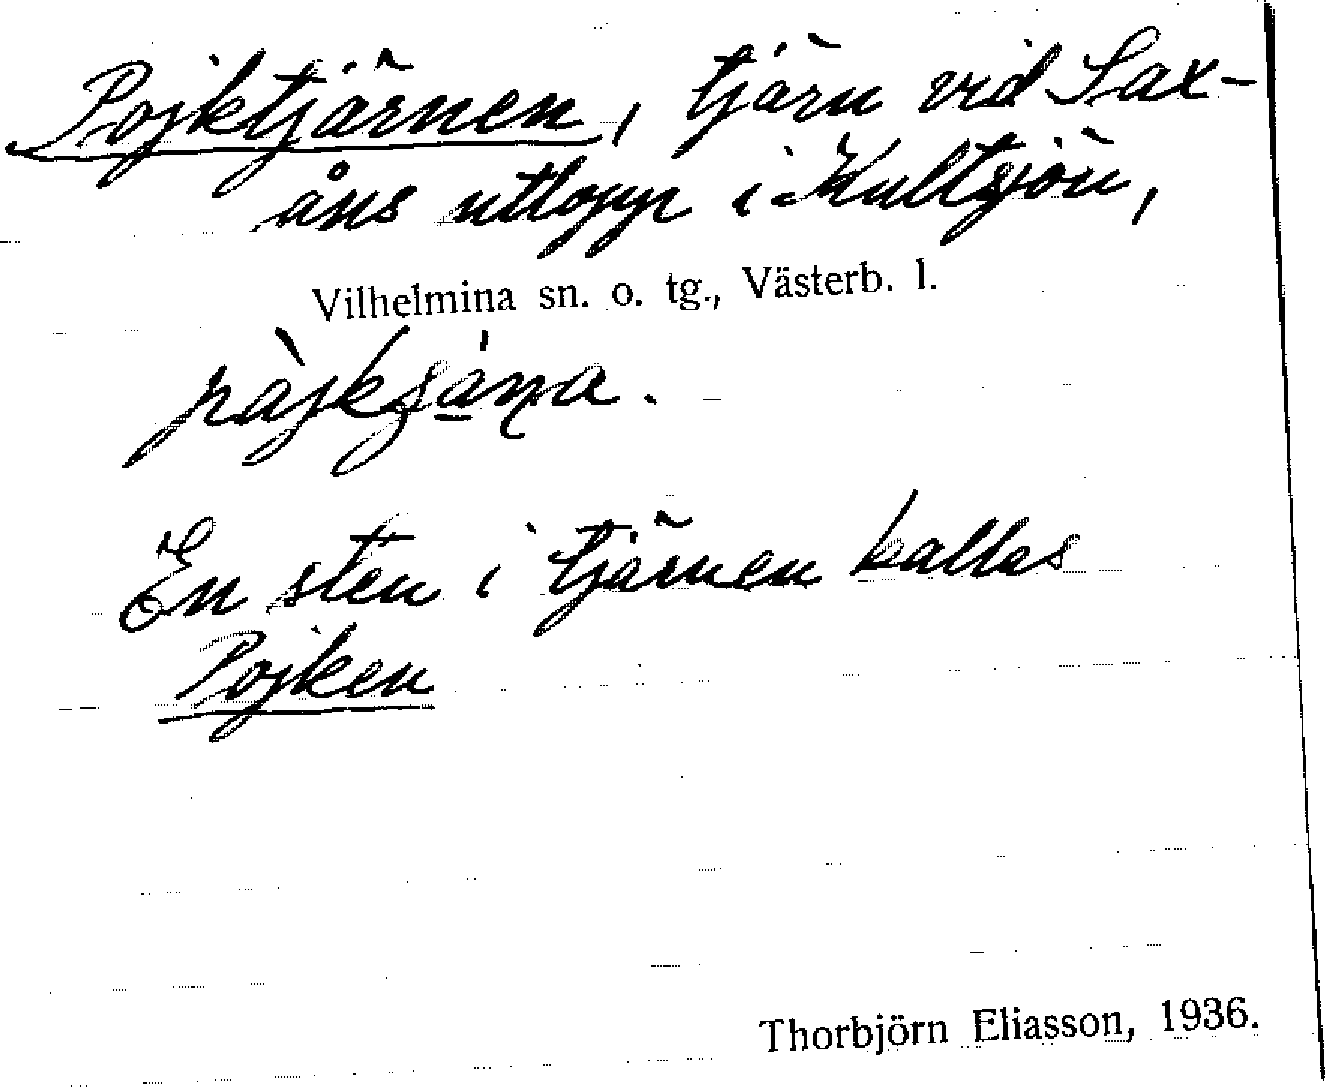 Pojktjärnen, tjärn vid Sax-
åns utlopp i Kultsjön,
Vilhelmina sn. o. tg., Västerb. l.
En sten i tjärnen kallas
Pojken
Thorbjörn Eliasson, 1936.